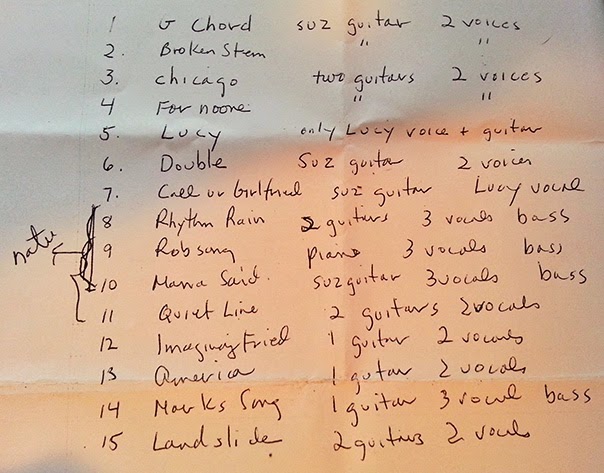 1 G Chord suz guitar 2 voices
2. Broken Stem " "
3. Chicago two guitars 2 voices
4 For noone " "
5. Lucy only Lucy voice + guitar
6. Double suz guitar 2 voices
7. Call ur Girlfried suz guitar Lucy vocal
8 Rhythm Rain 2 guitars 3 vocals bass
natu
9 Rob song piano 3 vocals bass
10 Mama Said. suz guitar 3 vocals bass
11 Quiet Line 2 guitars 2 vocals
12 Imaginary Fried 1 guitar 2 vocals
13 America 1 gutar 2 vocals
14 Marks Song 1 guitar 3 vocal bass
15 Landslide 2 guitars 2 vocals